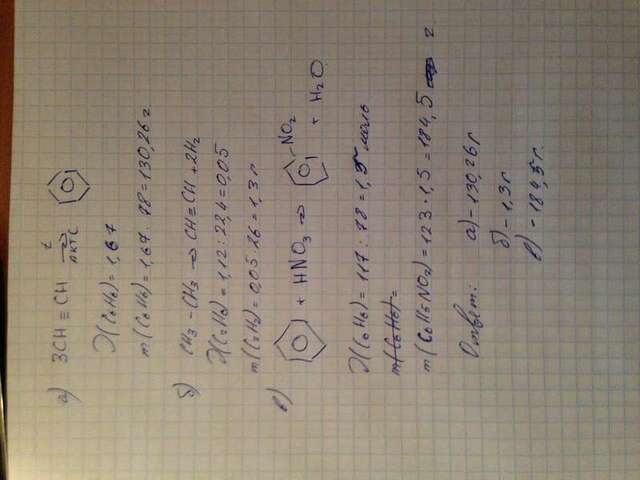 а) 3CH ≡ CH t акт С
ν(C6H6) = 1,67
m(C6H6) = 1,67 · 78 = 130,26 г
б) CH3 - CH3 → CH ≡ CH + 2H2
ν(C2H6) = 1,12 : 22,4 = 0,05
m(C2H2) = 0,05 · 26 = 1,3 г
в) + HNO3 → - NO2 + H2O
ν(C6H6) = 117 : 78 = 1,5 моль
m(C6H6) =
m(C6H5NO2) = 123 · 1,5 = 184,5 г
Ответ: а) - 130,26 г
б) - 1,3 г
в) - 184,5 г.